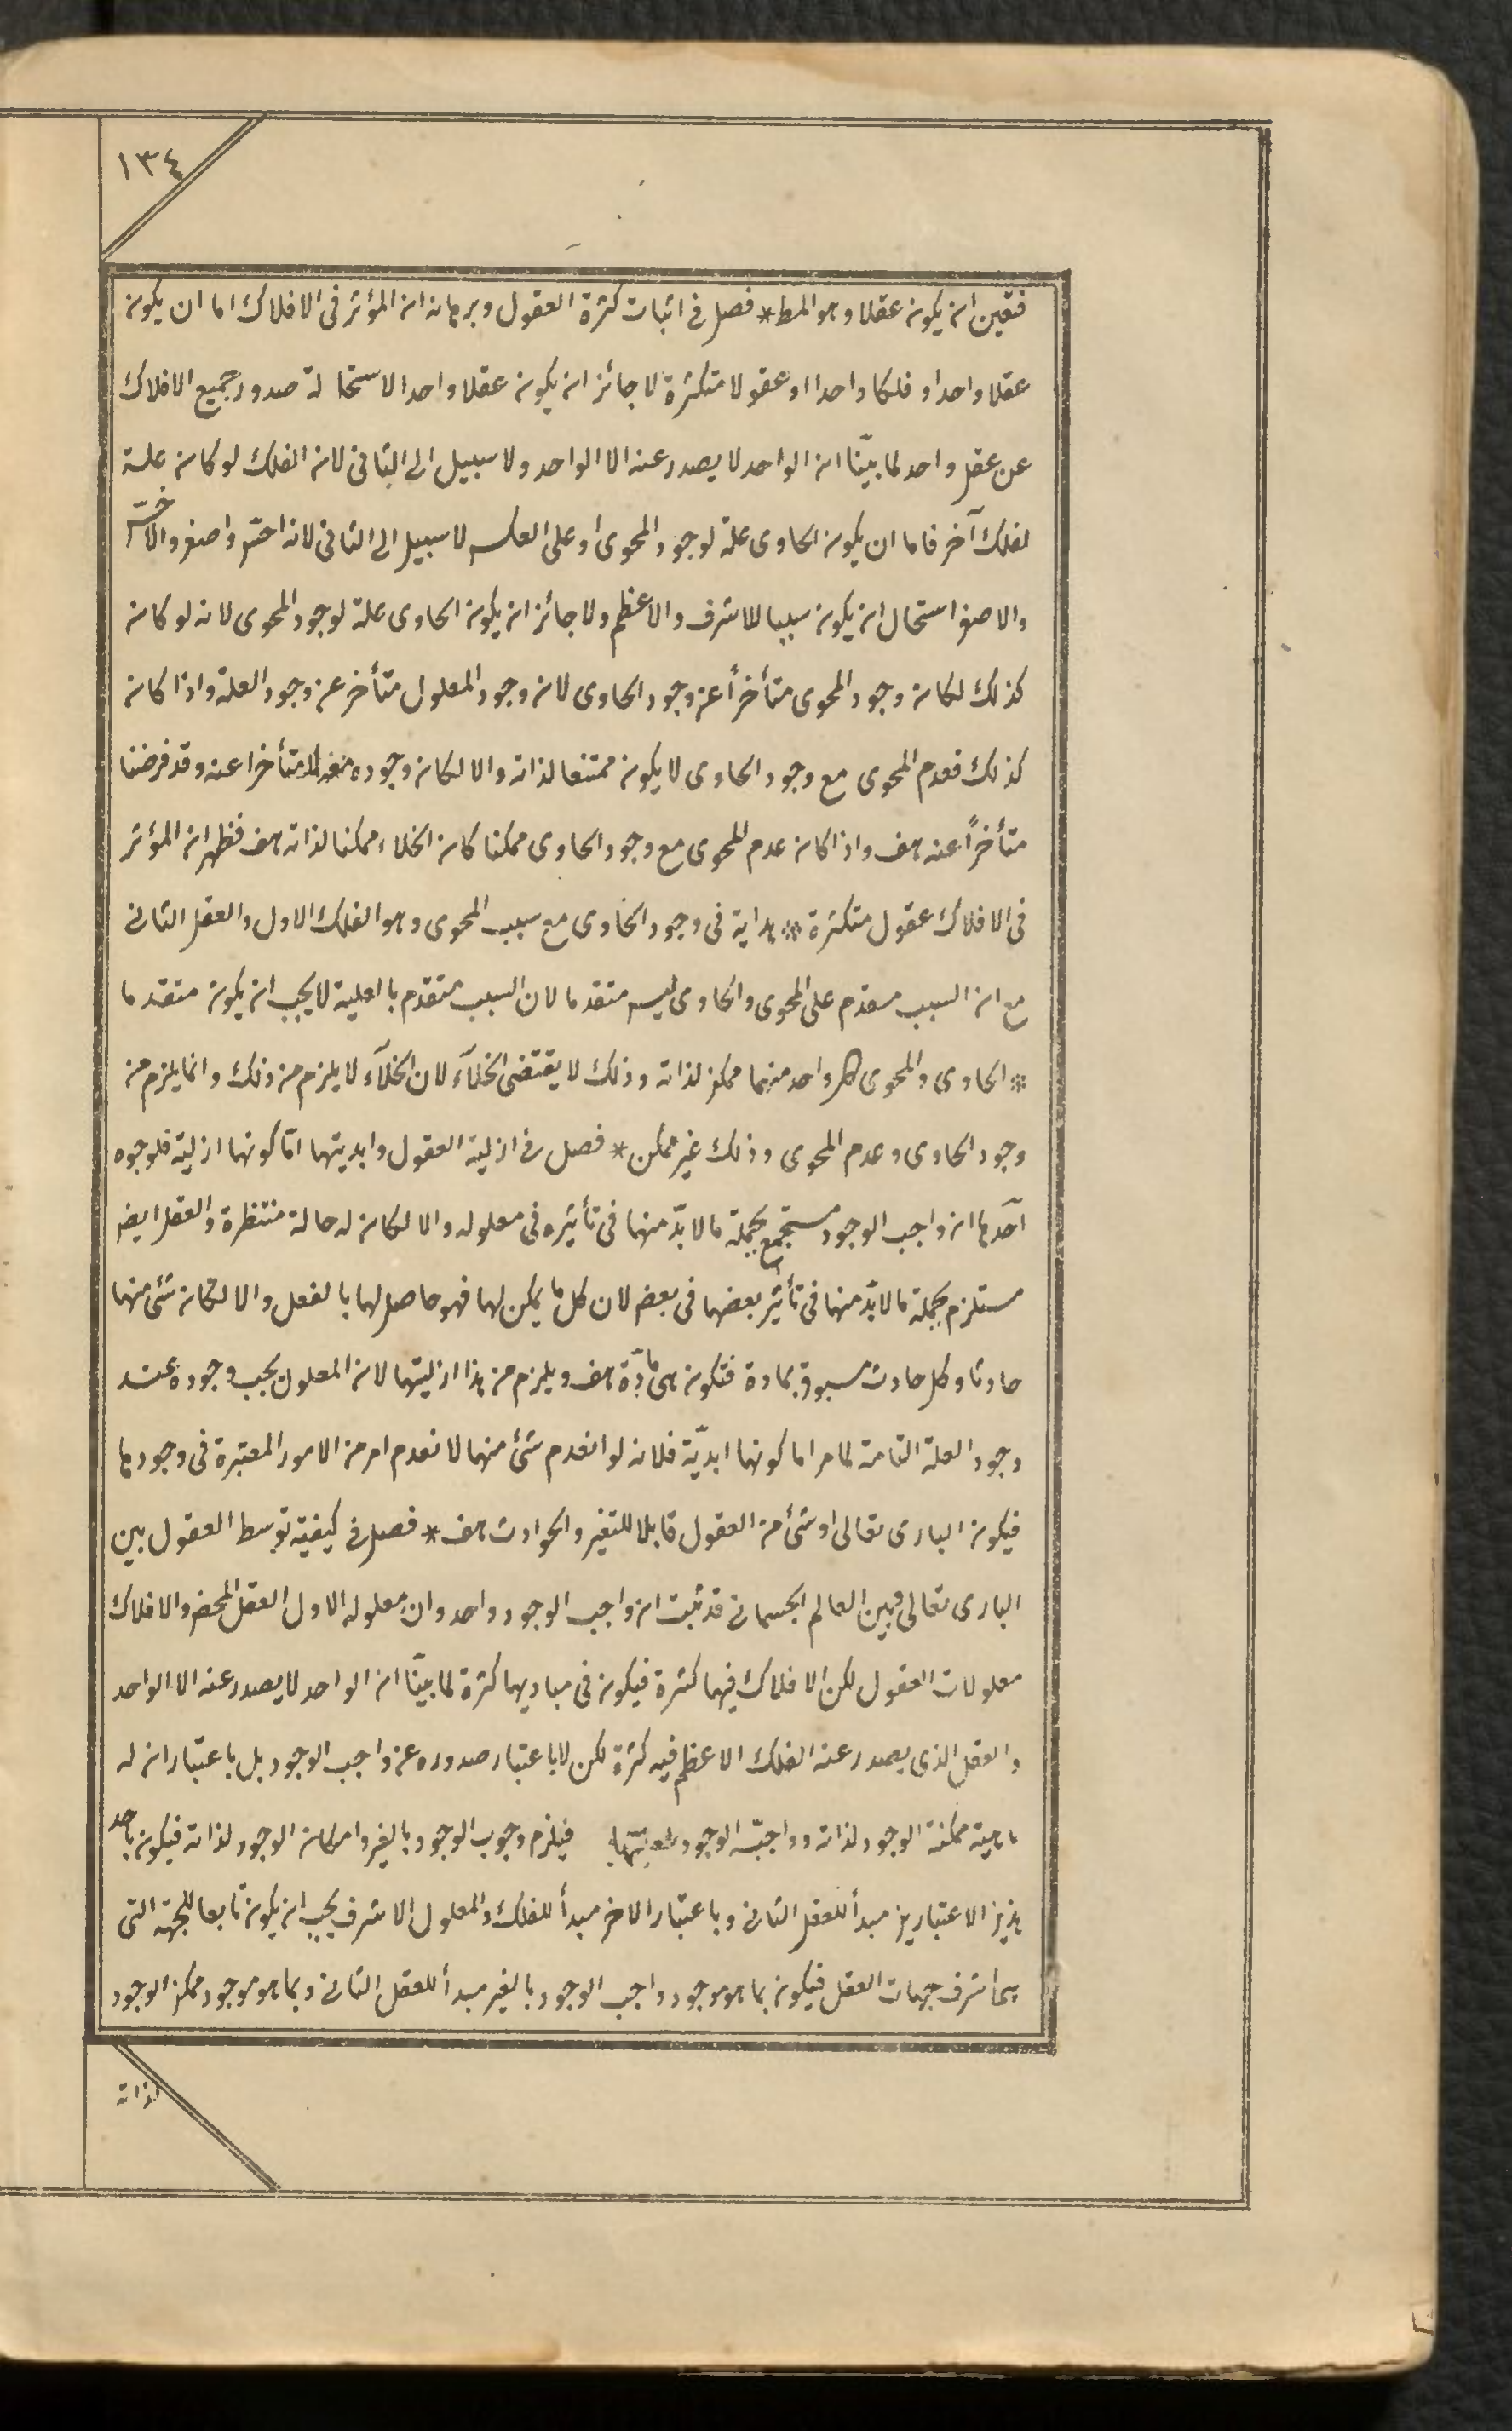 ١٣٤
فتعين ان يكون عقلا وهو المط * فصل فى اثبات كثرة العقول وبرهانه ان المؤثر فى الافلاك اما ان يكون
عقلا واحد او فلكا واحدا او عقولا متكثرة لا جائز ان يكون عقلا واحدا لاستحالة صدور جميع الافلاك
عن عقل واحد لما بيّنا ان الواحد لا يصدر عنه الا الواحد ولا سبيل الى الثانى لان الفلك لو كان علة
لفلك آخر فاما ان يكون الحاوى علة لوجود المحوى او على العكس لا سبيل الى الثانى لانه اخسّ واصغر والاخسّ
والاصغر استحال ان يكون سببا للاشرف والاعظم ولا جائز ان يكون الحاوى علة لوجود المحوى لانه لو كان
كذلك لكان وجود المحوى متأخرأ عن وجود الحاوى لان وجود المعلول متأخر عن وجود العلة واذا كان
كذلك فعدم المحوى مع وجود الحاوى لا يكون ممتنعا لذاته والا لكان وجوده معه لا متأخرا عنه وقد فرضنا
متأخراً عنه هف واذا كان عدم المحوى مع وجود الحاوى ممكنا كان الخلاء ممكنا لذاته هف فظهر ان المؤثر
فى الافلاك عقول متكثرة * هداية فى وجود الحاوى مع سبب المحوى وهو الفلك الاول والعقل الثانى
مع ان السبب مقدم على المحوى والحاوى ليس متقدما لان السبب متقدم بالعلية لا يجب ان يكون متقدما
* الحاوى والمحوى كل واحد منهما ممكن لذاته وذلك لا يقتضى الخلآء لان الخلآء لا يلزم من ذلك وانما يلزم من
وجود الحاوى وعدم المحوى وذلك غير ممكن * فصل فى ازلية العقول وابديتها امّا كونها ازلية فلوجوه
احدها ان واجب الوجود مستجمع بجملة ما لا بدّ منها فى تأثيره فى معلوله والا لكان له حالة منتظرة والعقل ايضه
مستلزم بجملة ما لا بدّ منها فى تأثير بعضها فى بعض لان كل ما يمكن لها فهو حاصل لها بالفعل والا لكان شئ منها
حادثا وكل حادث مسبوق بمادة فتكون هى مادّة هف ويلزم من هذا ازليتها لان المعلول يجب وجوده عند
وجود العلة التامة لما مر اما كونها ابديّة فلانه لو انعدم شئ منها لانعدم امر من الامور المعتبرة فى وجودها
فيكون البارى تعالى او شئ من العقول قابلا للتغير والحوادث هف * فصل فى كيفية توسط العقول بين
البارى تعالى وبين العالم الجسمانى قد ثبت ان واجب الوجود واحد وان معلوله الاول العقل المحض والافلاك
معلولات العقول لكن الافلاك فيها كثرة فيكون فى مباديها كثرة لما بيّنا ان الواحد لا يصدر عنه الا الواحد
والعقل الذى يصدر عنه الفلك الاعظم فيه كثرة لكن لا باعتبار صدوره عن واجب الوجود بل باعتبار ان له
ماهية ممكنة الوجود لذاته وواجبة الوجود فيلزم وجوب الوجود بالغير وامكان الوجود لذاته فيكون باحد
هذين الاعتبارين مبدأ للعقل الثانى وباعتبار الاخر مبدأ للفلك والمعلول الاشرف يجب ان يكون تابعا للجهة التى
هى اشرف جهات العقل فيكون بما هو موجود واجب الوجود بالغير مبدأ للعقل الثانى وبما هو موجود ممكن الوجود
لذاته